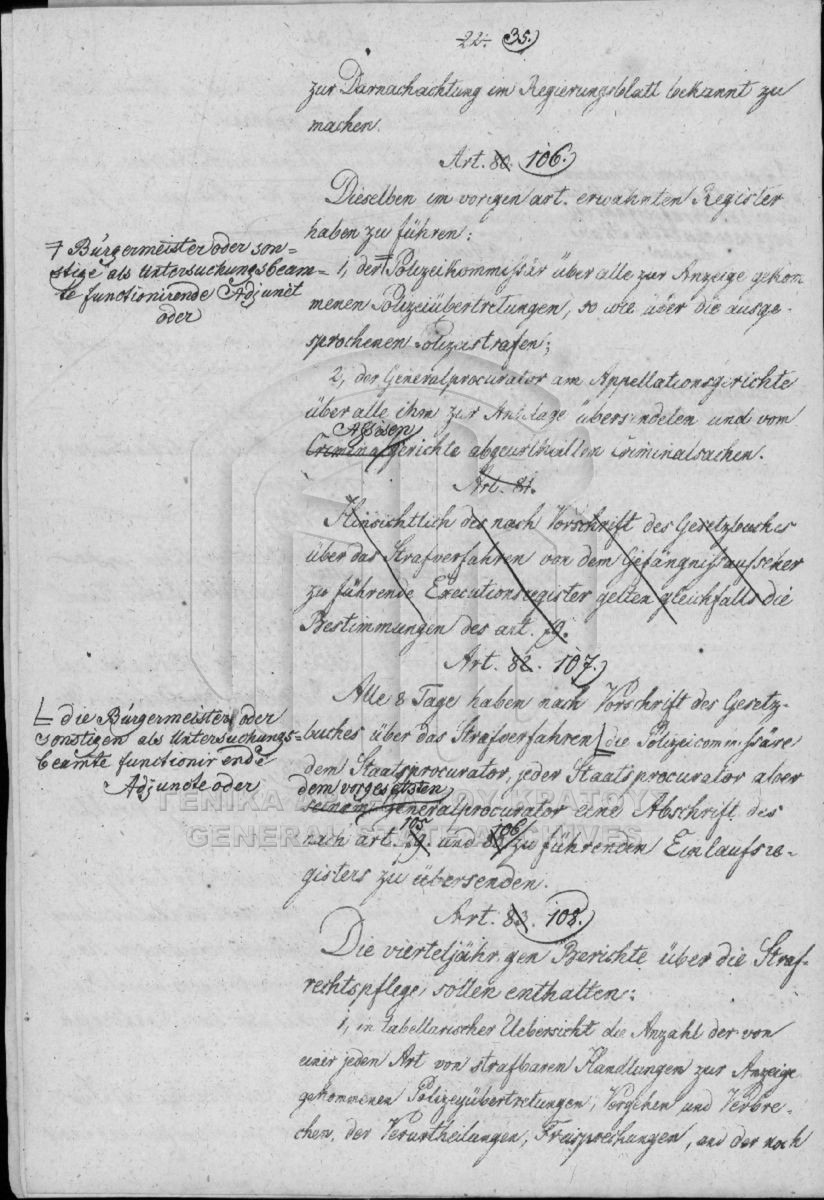 22. 35.
zur Darnachachtung im Regierungsblatt bekannt zu
machen.
Art. 80. 106.
Dieselben im vorigen art. erwähnten Register
haben zu führen:
Bürgermeister oder son=
stige als Untersuchungsbeam=
te functionirende Adjunct
oder
1, der Polizeikommissär über alle zur Anzeige gekom
menen Polizeiübertretungen, so wie über die ausge-
sprochenen Polizeistrafen;
2, der Generalprocurator am Appellationsgerichte
über alle ihm zur Anklage übersendeten und vom
Assisen
Criminalgerichte abgeurtheilten Criminalsachen.
Art. 81.
Hinsichtlich des nach Vorschrift des Gesetzbuches
über das Strafverfahren von dem Gefängnissaufseher
zu führende Executionsregister gelten gleichfalls die
Bestimmungen des art. 79.
Art. 82. 107.
Alle 8 Tage haben nach Vorschrift des Gesetz-
die Bürgermeister oder
sonstigen als Untersuchungs=
beamte functionirende
Adjuncte oder
buches über das Strafverfahren die Polizeicommissäre
dem Staatsprocurator, jeder Staatsprocurator aber
dem vorgesetzten
seinem Generalprocurator eine Abschrift des
105 106
nach art. 79. und 80 zu führenden Einlaufsre-
gisters zu übersenden.
Art. 83. 108.
Die vierteljährigen Berichte über die Straf-
rechtspflege sollen enthalten:
1, in tabellarischer Uebersicht die Anzahl der von
einer jeden Art von strafbaren Handlungen zur Anzeige
gekommenen Polizeyübertretungen, Vergehen und Verbre-
chen, der Verurtheilungen, Freisprechungen, und der noch
ΓΕΝΙΚΑ ΑΡΧΕΙΑ ΤΟΥ ΚΡΑΤΟΥΣ
GENERAL STATE ARCHIVES